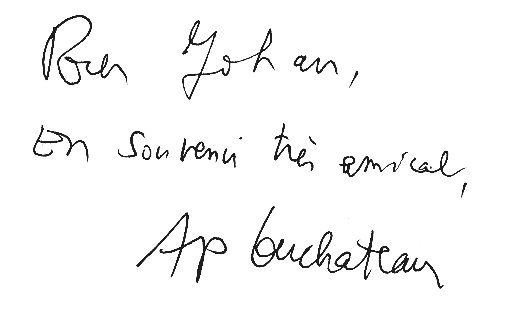 Pour Johan,
En souvenir très amical,
AP Duchateau